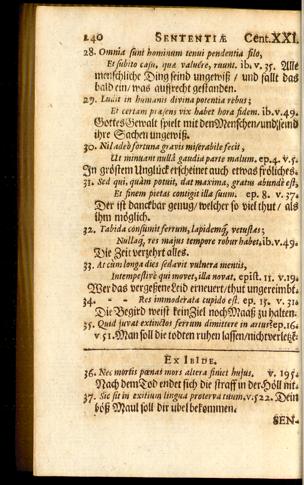 240 SENTENTIÆ Cent.XXI.
28. Omnia sunt hominum tenui pendentia filo,
Et subito casu, quæ valuére, ruunt. ib. v. 35. Alle
menschliche Ding seind ungewiß / und fallt das
bald ein / was auffrecht gestanden.
29. Ludit in humanis divina potentia rebus;
Et certam præsens vix habet hora fidem. ib.v.49.
Gottes Gewalt spielt mit dem Menschen / und seind
ihre Sachen ungewiß.
30. Nil adeò fortuna gravis miserabile fecit,
Ut minuant nullâ gaudia parte malum. ep.4. v.5.
In gröstem Unglück erscheinet auch etwas fröliches.
31. Sed qui, quàm potuit, dat maxima, gratus abundè est,
Et finem pietas contigit illa suum. ep 8. v. 37.
Der ist danckbar genug / welcher so viel thut / als
ihm möglich.
32. Tabida consumit ferrum, lapidemq́, vetustas;
Nullaq, res majus tempore robur habet. ib.v.49.
Die Zeit verzehrt alles.
33. At cum longa dies sedavit vulnera mentis,
Intempestivè qui movet, illa novat. epist. 11. v.19.
Wer das vergeßene Leid erneuert / thut ungereimbt.
34. - - Res immoderata cupido est. ep. 15. v. 31.
Die Begird weist kein Ziel noch Maaß zu halten.
35. Quid juvat extinctos ferrum dimittere in artus? ep.16.
v 51. Man soll die todten ruhen lassen / nicht verletzē.
EX IBIDE.
36. Nec mortis pœnas mors altera finiet hujus. v. 195.
Nach dem Tod endet sich die straff in der Höll nit.
37. Sic sit in exitium lingua proterva tuum. v.522. Dein
böß Maul soll dir übel bekommen.
SEN-